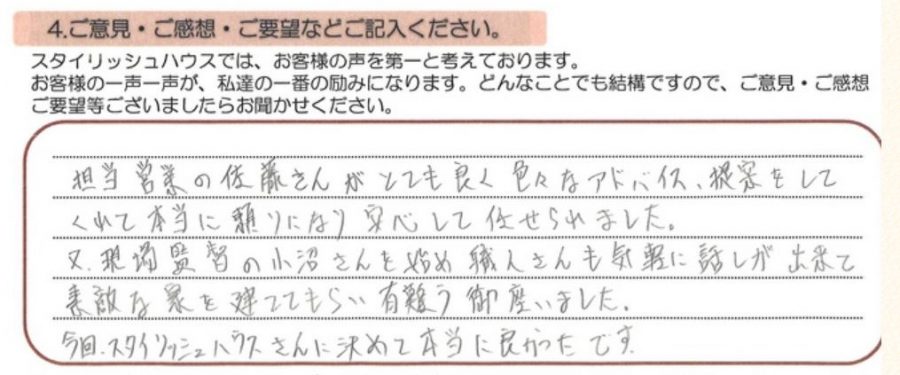 4.ご意見・ご感想・ご要望などご記入ください。
スタイリッシュハウスでは、お客様の声を第一と考えております。
お客様の一声一声が、私達の一番の励みになります。どんなことでも結構ですので、ご意見・ご感想
ご要望等ございましたらお聞かせください。
担当営業の佐藤さんがとても良く色々なアドバイス、提案をして
くれて本当に頼りになり安心して任せられました。
又、現場監督の小沼さんを始め職人さんも気軽に話しが出来て
素敵な家を建ててもらい有難う御座いました。
今回、スタイリッシュハウスさんに決めて本当に良かったです